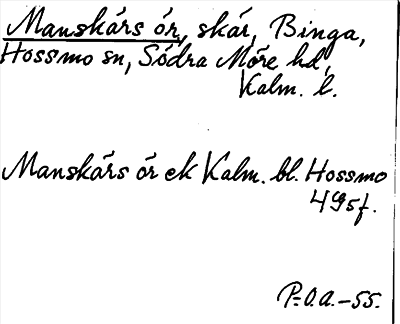 Manskärs ör, skär, Binga,
Hossmo sn, Södra Möre hd,
Kalm. l.
Manskärs ör ek Kalm. bl. Hossmo
495f.
P.O.A.-55.